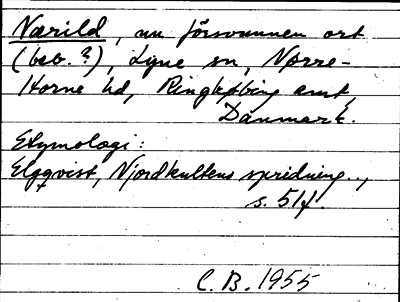 Nærild, nu försvunnen ort
(beb.?), Lyne sn, Nørre-
Horne hd, Ringkøbing amt,
Danmark.
Etymologi:
Elgqvist, Njordkultens spridning..,
s. 51f.
C. B. 1955